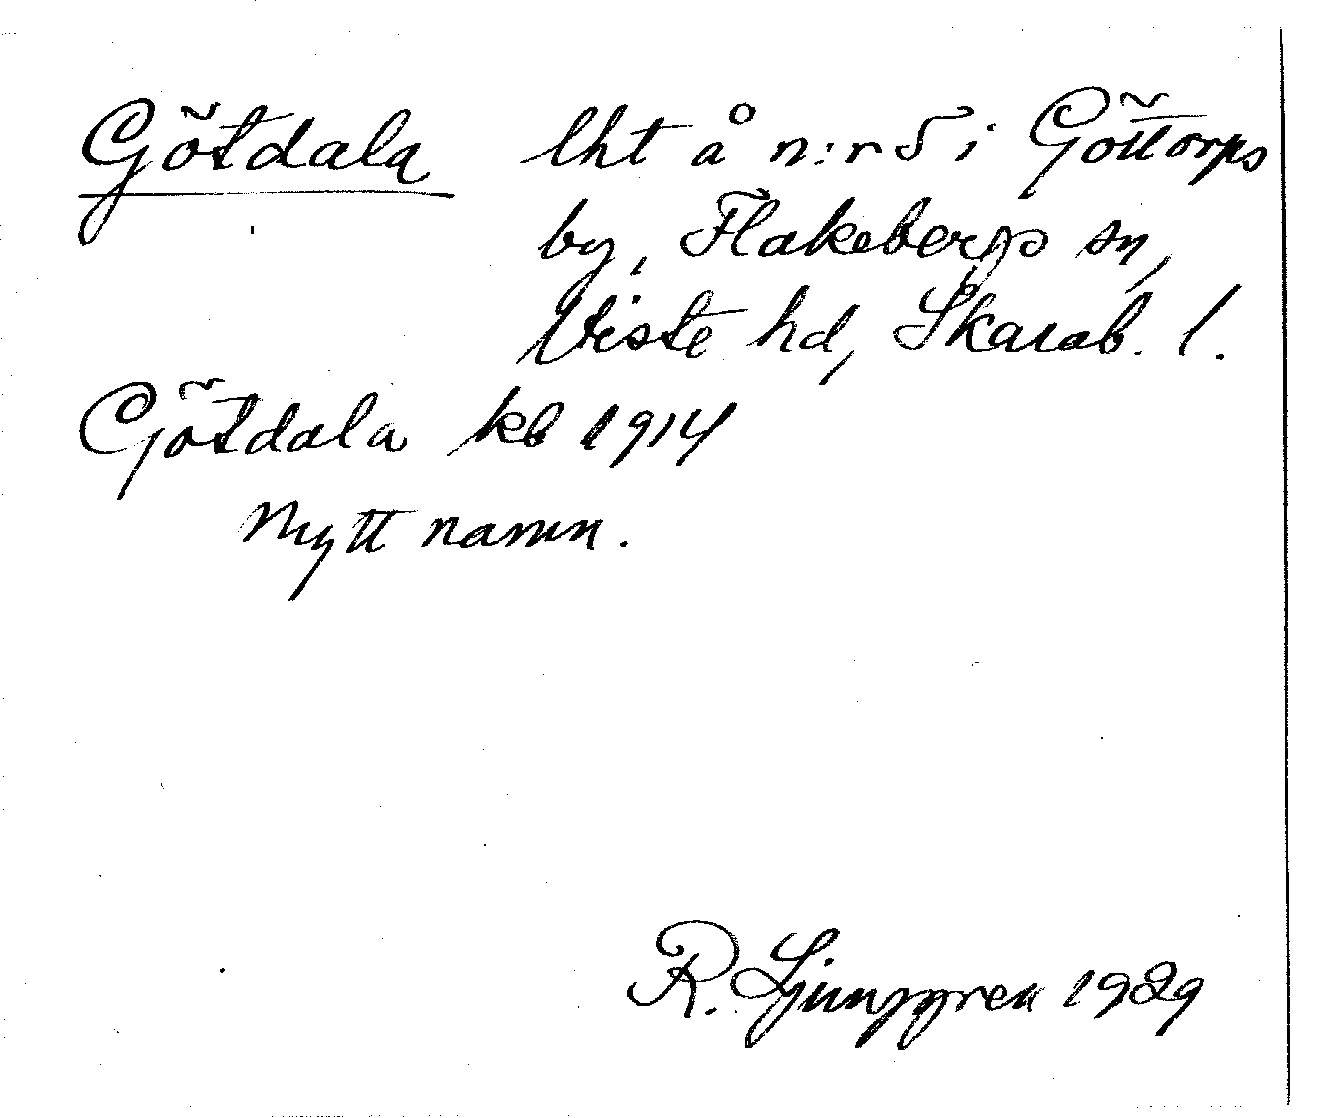 Götdala lht å n:r 5 i Göttorps
by, Flakebergs sn,
Viste hd, Skarab. l.
Götdala kb 1914
Nytt namn.
R. Ljunggren 1929